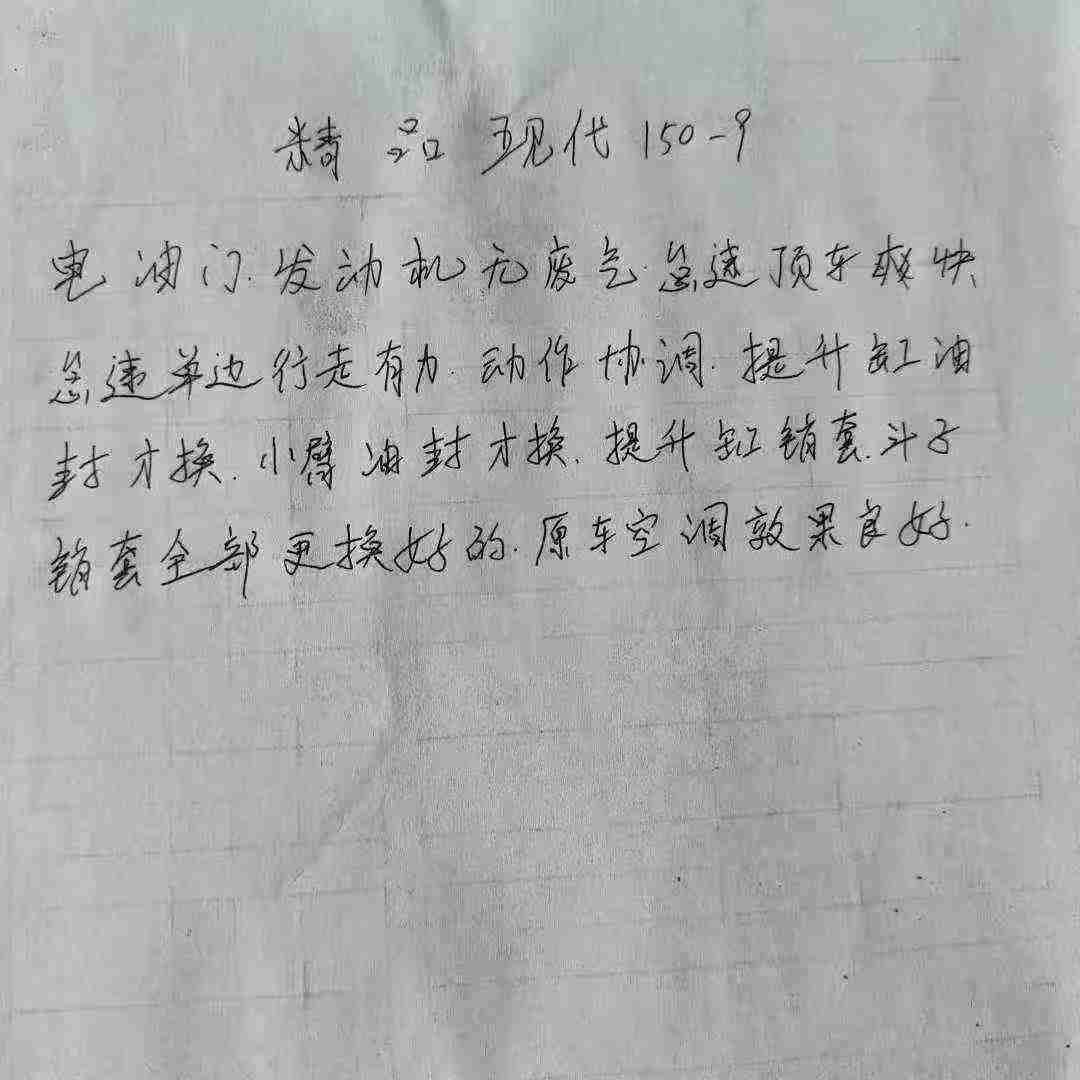 精品 现代150-9
电油门.发动机无废气.怠速顶车爽快
怠速单边行走有力.动作协调.提升缸油
封才换.小臂油封才换.提升缸销套.斗子
销套全部更换好的.原车空调效果良好.